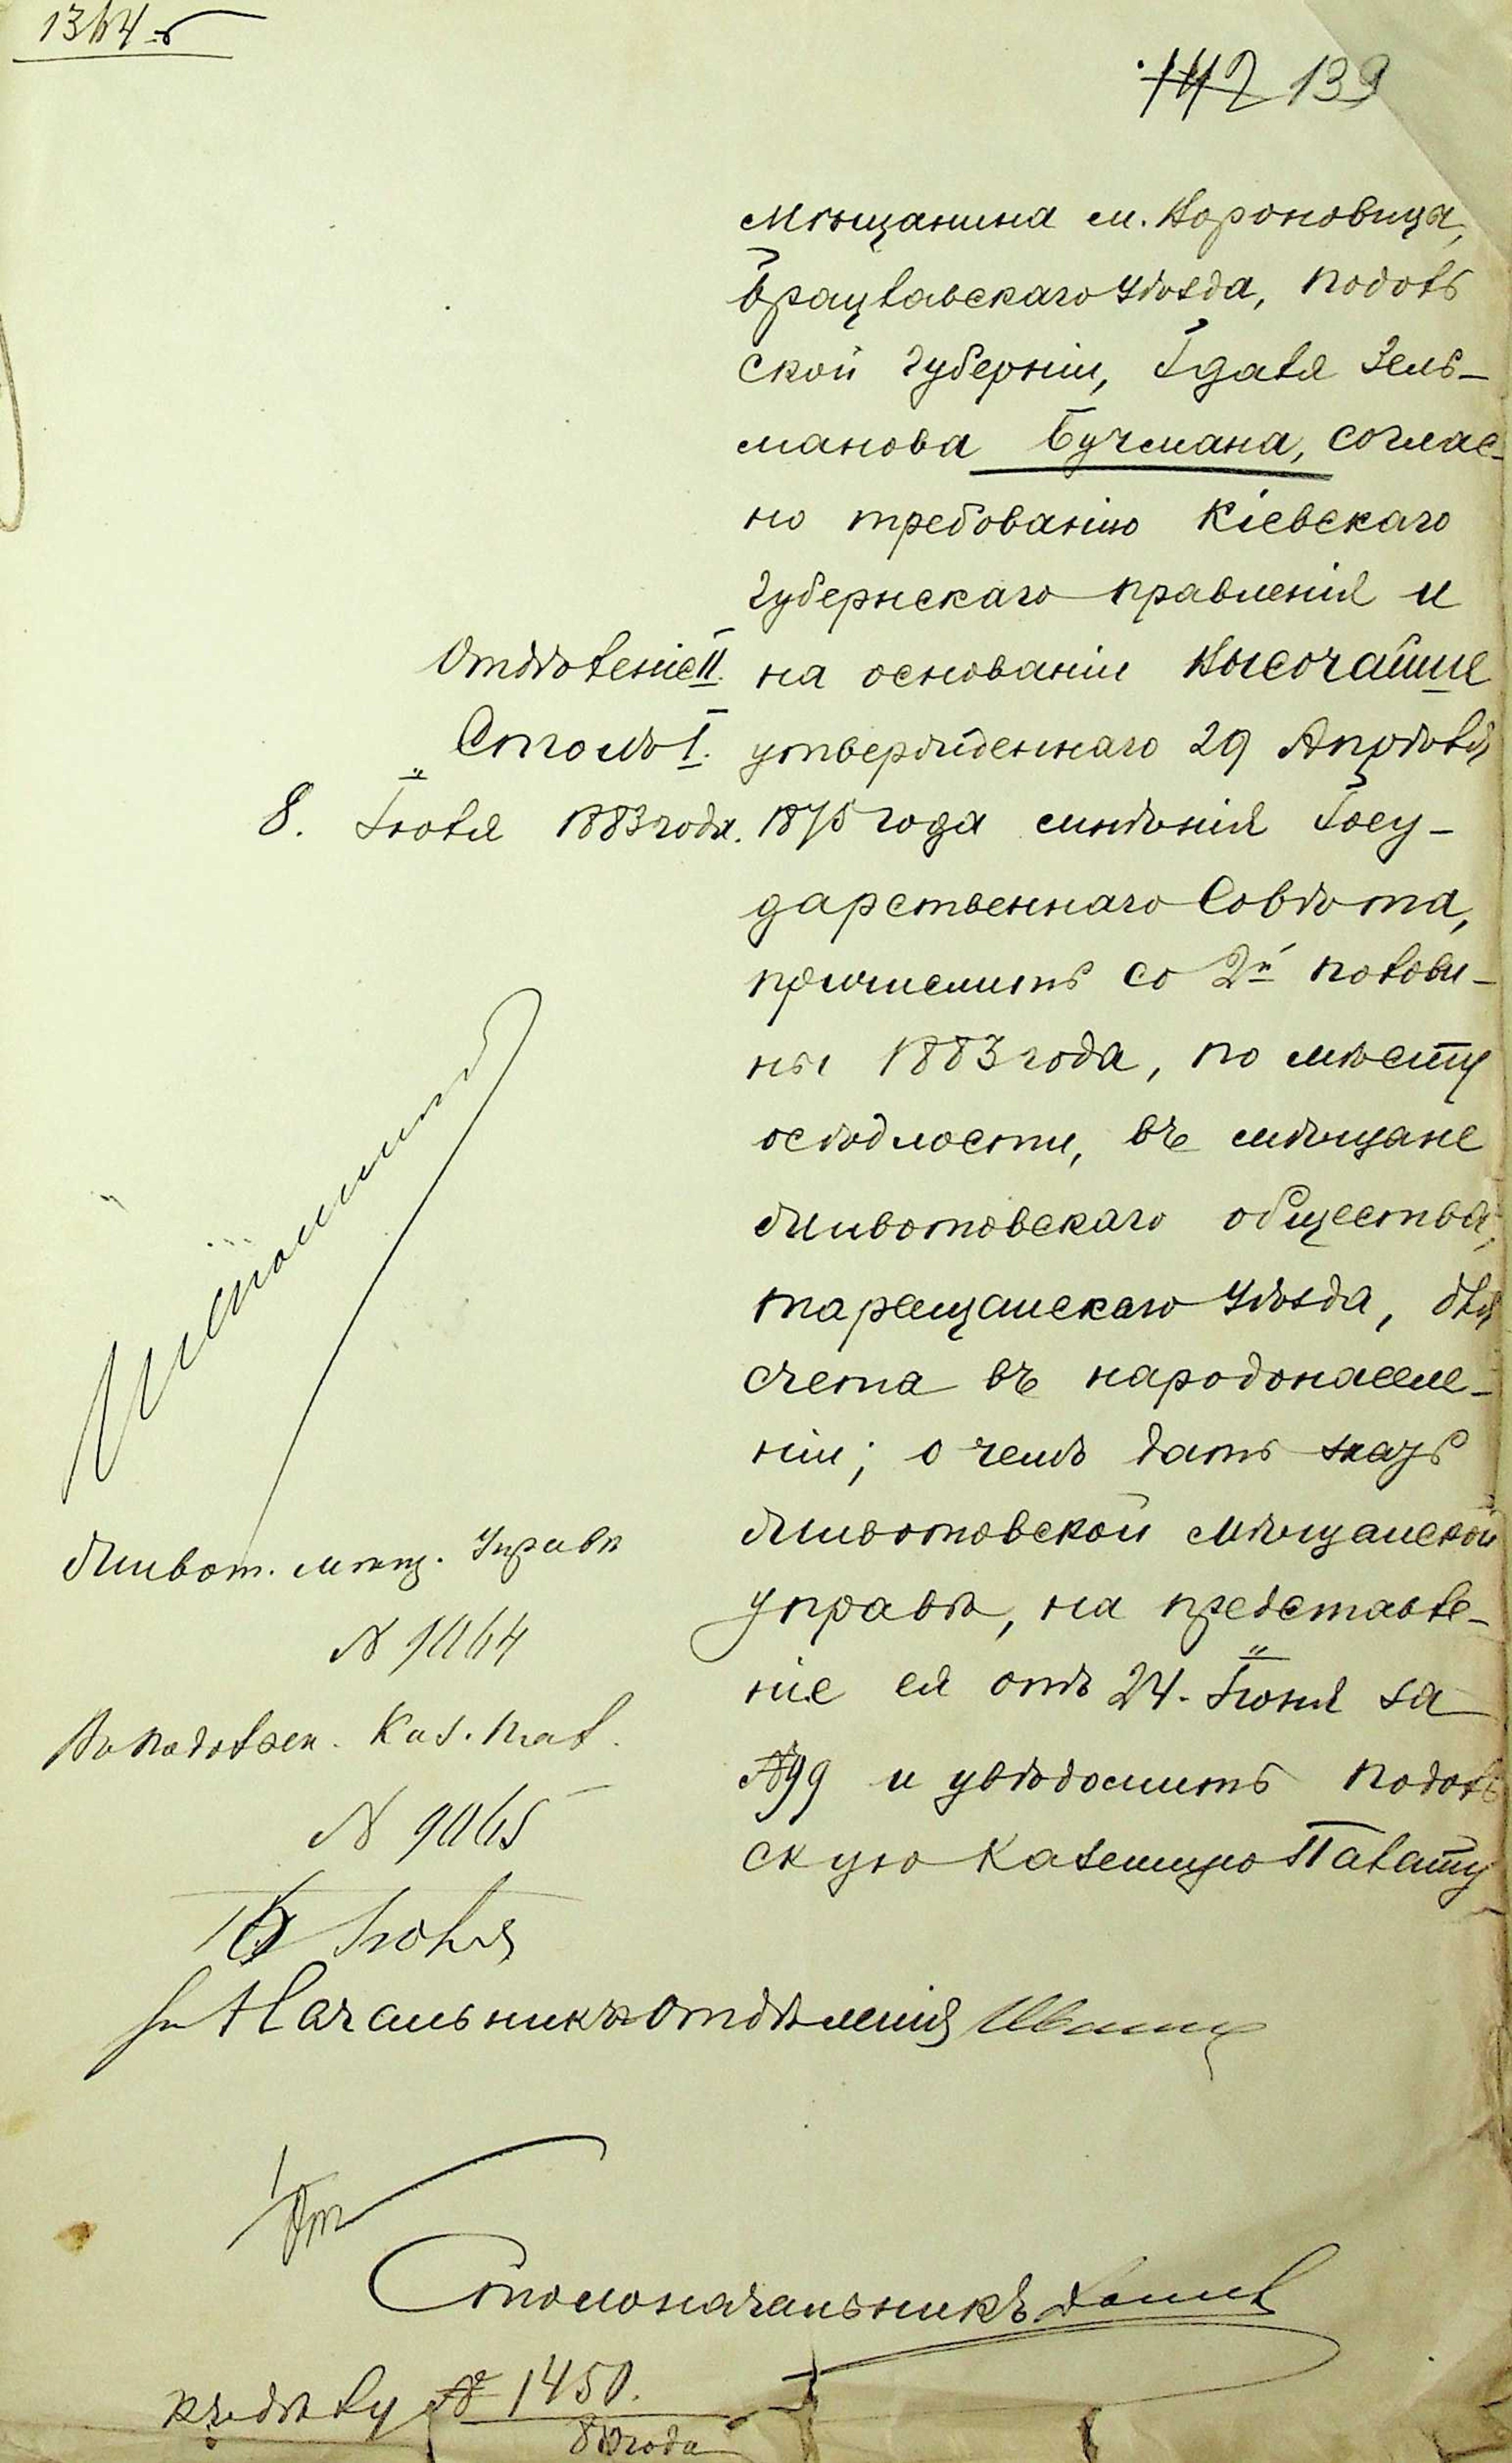 142 139
мѣщанина м. Вороновица,
Брацлавскаго уѣзда, Подоль
ской губерніи, Гдаля Зель-
манова Бучмана, соглас-
но требованію Кіевскаго
Губернскаго правленія и
на основаніи Высочайше
утвержденнаго 29 Апрѣля
1875 года мнѣнія Госу-
дарственнаго Совѣта,
причислить со 2й полови-
ны 1883 года, по мѣсту
осѣдлости, въ мѣщане
Животовскаго общества,
Таращанскаго уѣзда, для
счета въ народонаселе-
ніи; о чемъ дать указъ
Животовской мѣщанской
управѣ, на представле-
ніе ея отъ 24. Іюня за
№99 и увѣдомить Подоль
скую Казенную Палату
Отдѣленіе II.
Столъ I.
8. Іюля 1883 года.
Живот. мѣщ. Управѣ
№ 9064
Въ Подольск. Каз. Пал.
№ 9065
Іюля
Начальникъ Отдѣленія
Столоначальникъ
къ дѣлу № 1450.
83 года